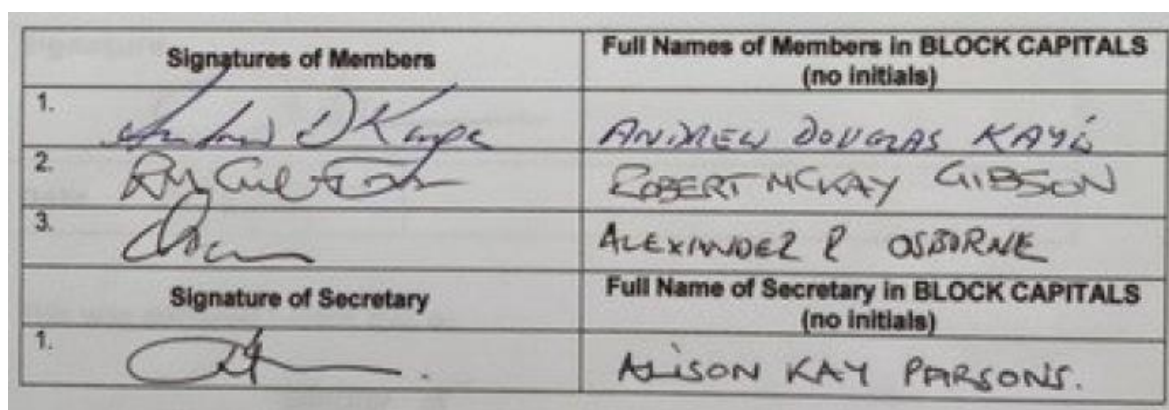 Signatures of Members Full Names of Members in BLOCK CAPITALS
(no initials)
1. ANDREW DOUGLAS KAYE
2. ROBERT MCKAY GIBSON
3. ALEXANDER P OSBORNE
Signature of Secretary Full Name of Secretary in BLOCK CAPITALS
(no initials)
1. ALISON KAY PARSONS.